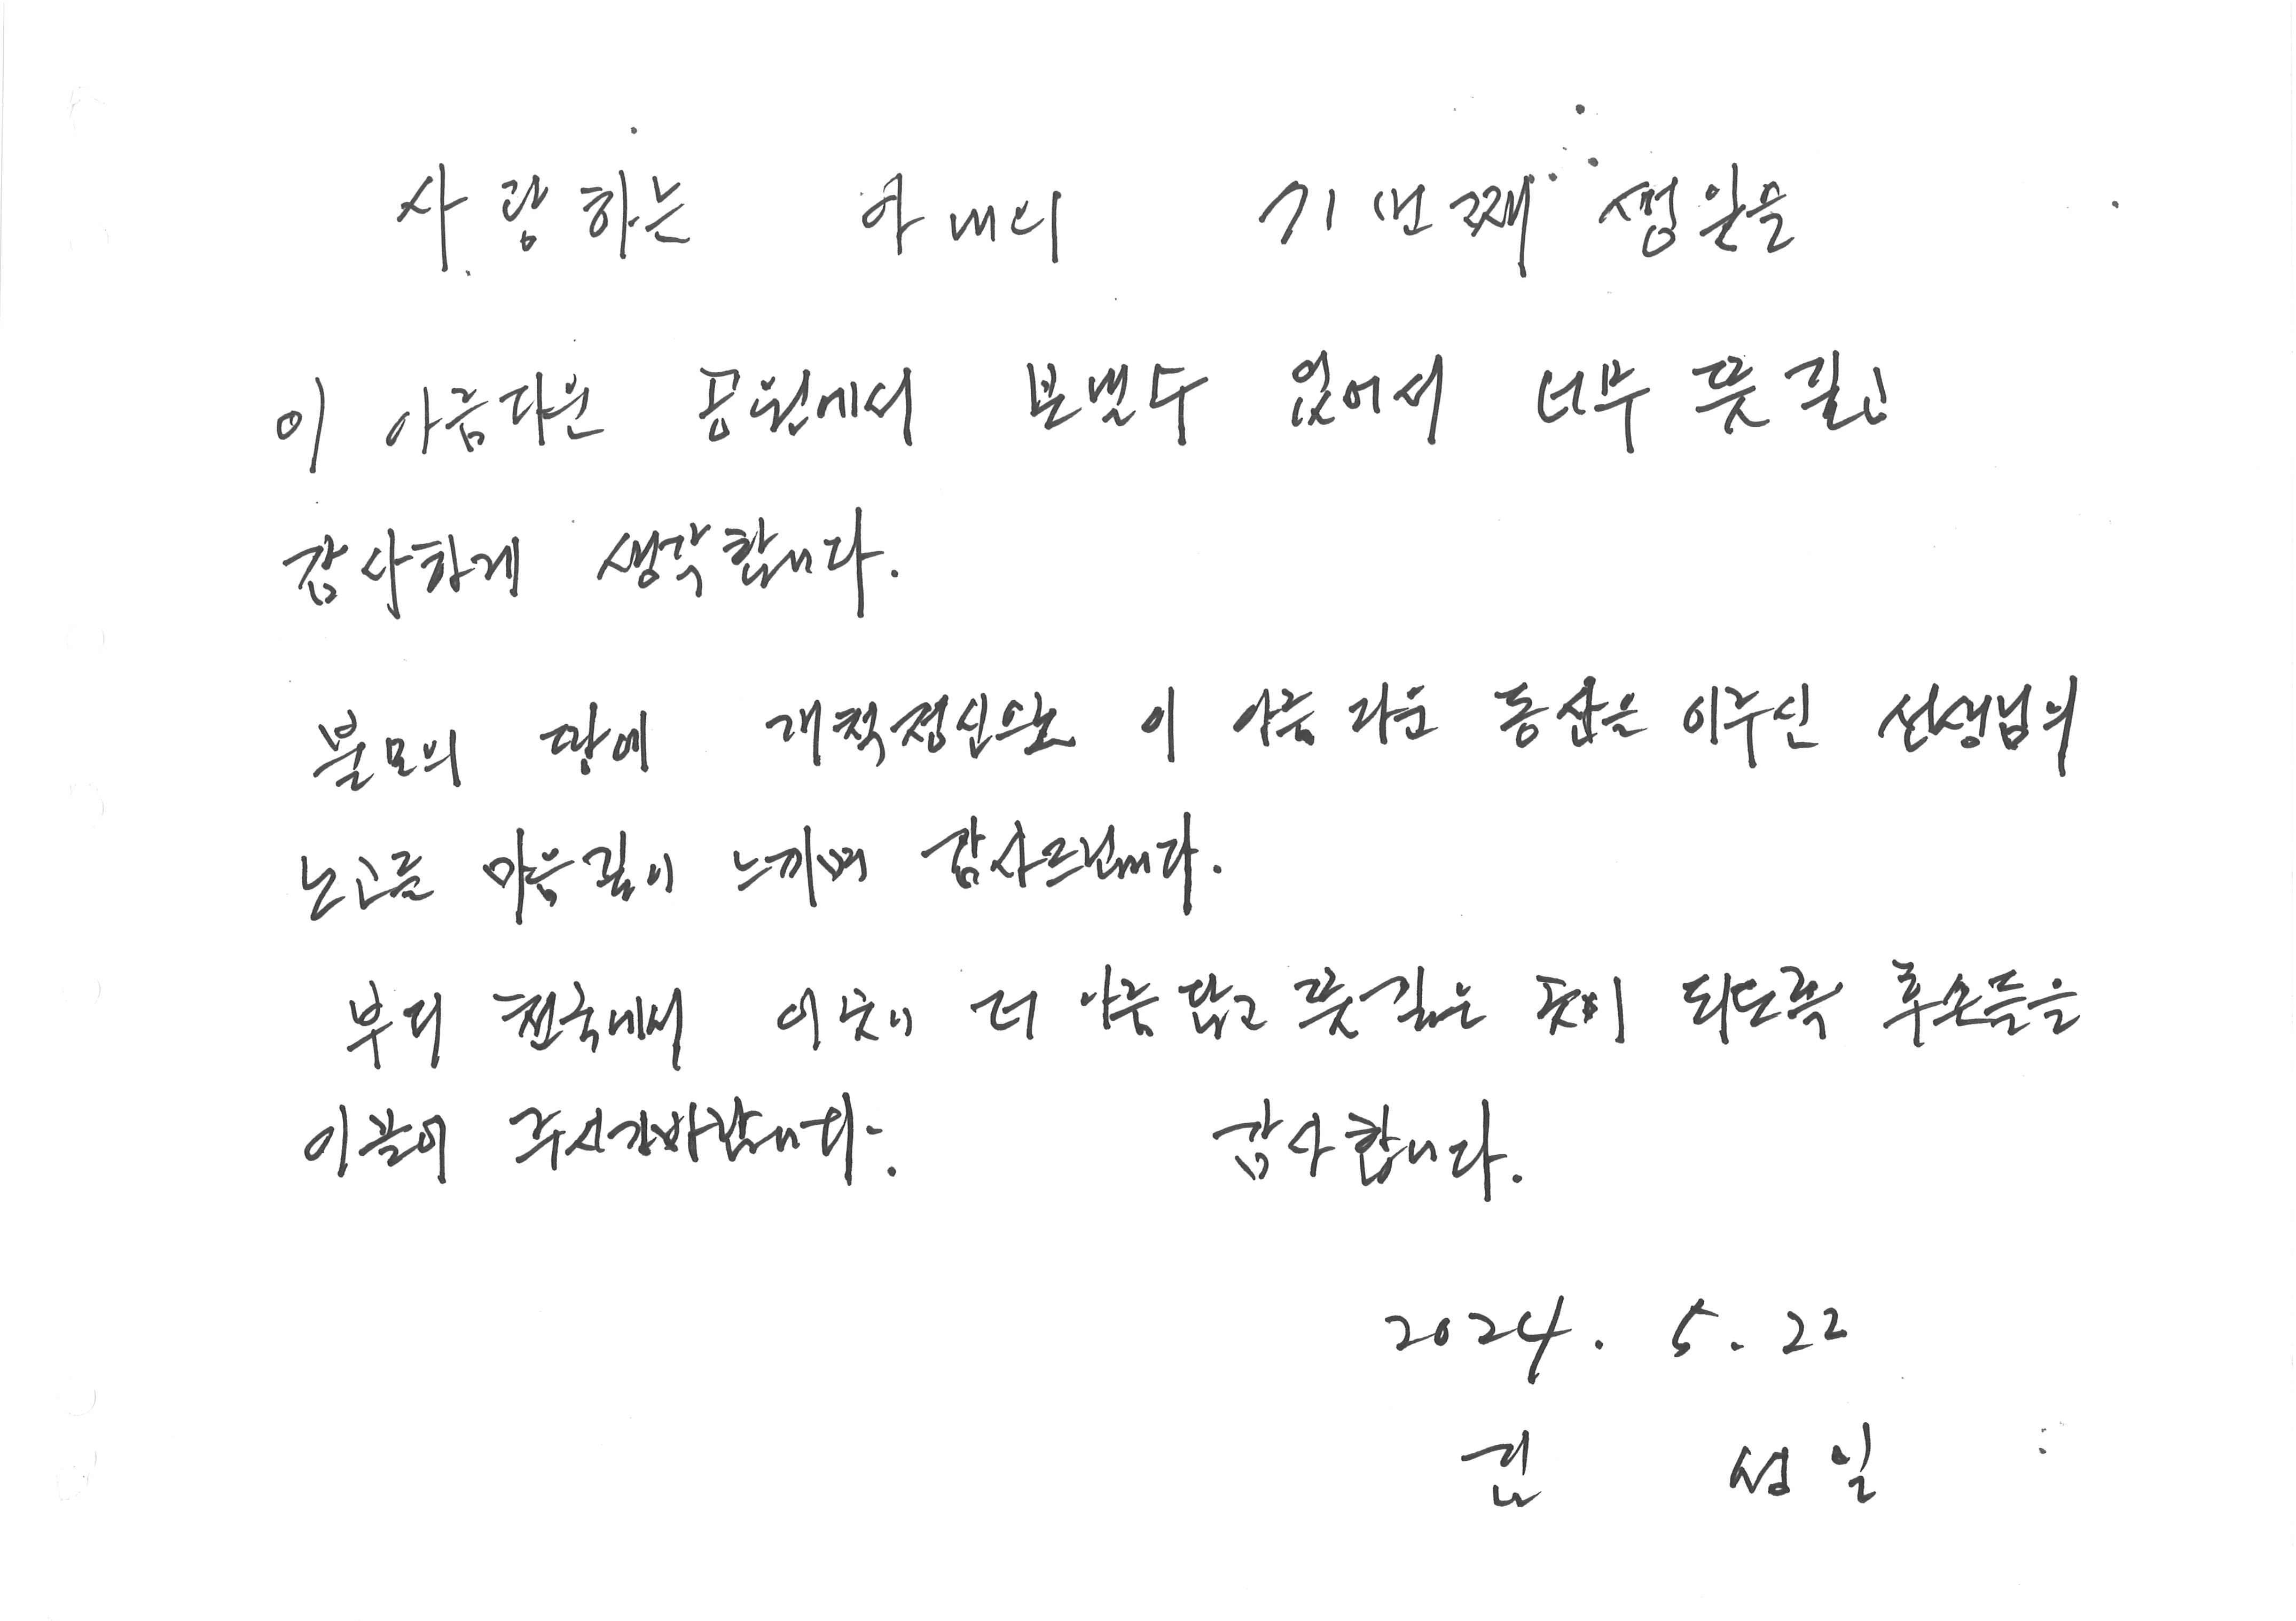 사랑하는 아내의 71번째 생일을
이 아름다운 공원에서 보낼수 있어서 너무 뜻깊고
감사하게 생각합니다.
불모의 땅에 개척정신으로 이 아름다운 동산을 이루신 선생님의
노고를 마음깊이 느끼며 감사드립니다.
부디 천국에서 이곳이 더 아름답고 뜻깊은 곳이 되도록 후손들을
이끌어 주시기바랍니다. 감사합니다.
2024. 5. 22
성일